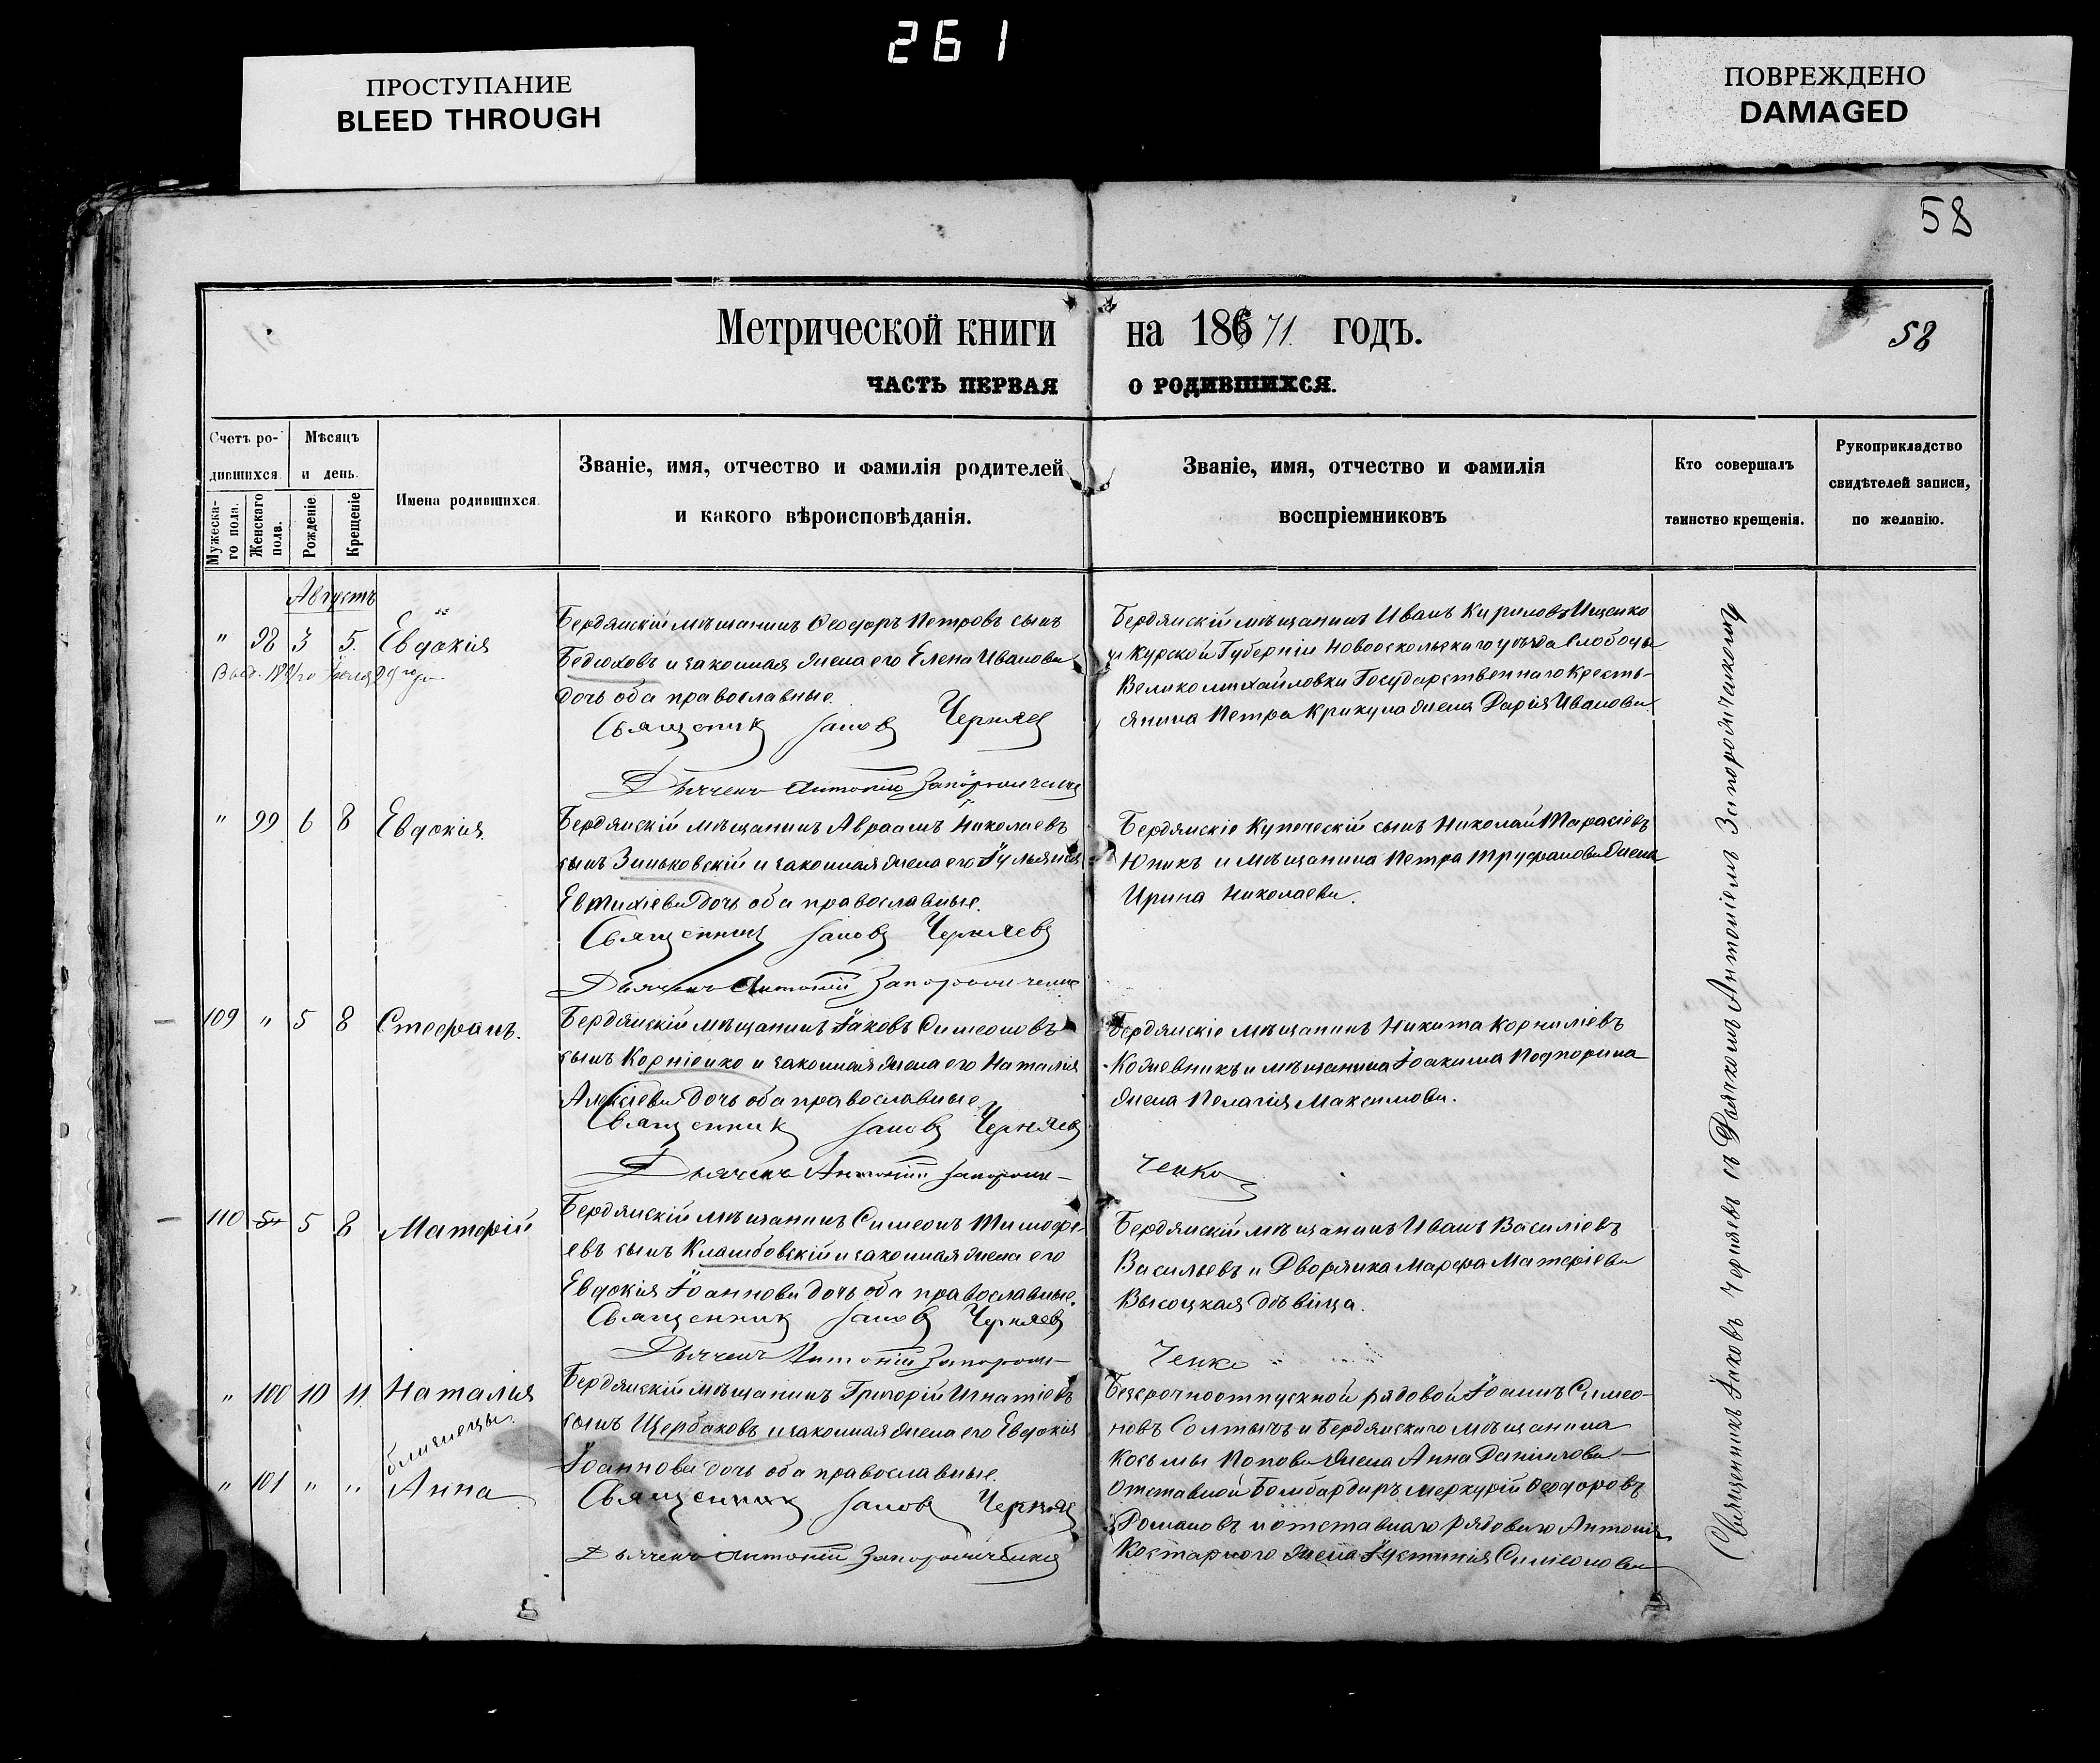 261
ПРОСТУПАНИЕ
BLEED THROUGH
ПОВРЕЖДЕНО
DAMAGED
58
Метрической книги на 186 71. годъ.
58
ЧАСТЬ ПЕРВАЯ О РОДИВШИХСЯ.
Счетъ родившихся.
Мѣсяцъ и день.
Мужескаго пола.
Женскаго пола.
Рожденіе
Крещеніе
Имена родившихся.
Званіе, имя, отчество и фамилія родителей
и какого вѣроисповѣданія.
Званіе, имя, отчество и фамилія
воспріемниковъ
Кто совершалъ
таинство крещенія.
Рукоприкладство
свидѣтелей записи,
по желанію.
Августъ
" 98 3 5. Евдокія
Бердянскій мѣщанинъ Ѳеодоръ Петровъ сынъ
Бедюховъ и законная жена его Елена Иванова
дочь оба православные.
Священникъ Іаковъ Черняев
Дьячекъ Антоній Запорожченко
Бердянскій мѣщанинъ Иванъ Кириловъ Ищенко
и Курской Губерніи Новооскольскаго уѣзда Слободы
Великомихайловки Государственнаго Кресть-
янина Петра Крикуна жена Дарія Иванова
" 99 6 8 Евдокія
Бердянскій мѣщанинъ Авраамъ Николаевъ
сынъ Зиньковскій и законная жена его Іуліанія
Евтихіева дочь оба православные.
Священникъ Іаковъ Черняевъ
Дьячекъ Антоній Запорожченко
Бердянскіе Купеческій сынъ Николай Тарасіевъ
Юникъ и мѣщанина Петра Труфанова жена
Ирина Николаева.
109 " 5 8 Стефанъ.
Бердянскій мѣщанинъ Іаковъ Симеоновъ
сынъ Корніенко и законная жена его Наталія
Алексіева дочь оба православные
Священникъ Іаковъ Черняевъ
Дьячекъ Антоній Запорож-
ченко
Бердянскіе мѣщанинъ Никита Корниліевъ
Кожевникъ и мѣщанина Іоакима Подпорина
жена Пелагія Максимова.
110 5 8 Матфій
Бердянскій мѣщанинъ Симеонъ Тимофе-
евъ сынъ Клашбовскій и законная жена его
Евдокія Іоаннова дочь оба православные.
Священникъ Іаковъ Черняевъ
Дьячекъ Антоній Запорож-
ченко
Бердянскій мѣщанинъ Иванъ Василіевъ
Васильевъ и Дворянка Марфа Матфіева
Высоцкая дѣвица.
" 100 10 11. Наталія
близнецы.
" 101 " " Анна
Бердянскій мѣщанинъ Григорій Игнатіевъ
сынъ Щербаковъ и законная жена его Евдокія
Іоаннова дочь оба православные.
Священникъ Іаковъ Черняев
Дьячекъ Антоній Запорожченко
Безсрочноотпускной рядовой Іоаннъ Симео-
новъ Солтычъ и Бердянскаго мѣщанина
Козьмы Попова жена Анна Даніилова —
Отставной Бомбардиръ Меркурій Ѳеодоровъ
Романовъ и отставнаго рядоваго Антонія
Костарного жена Іустинія Симеонова
Священникъ Іаковъ Черняевъ съ Дьячкомъ Антоніемъ Запорожченкомъ